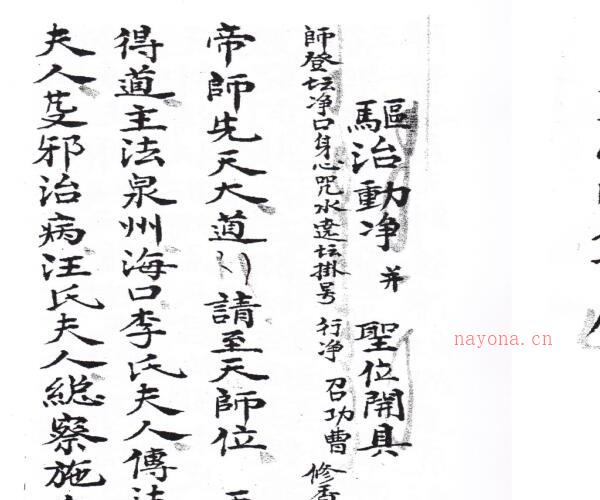 驅治動净 并 聖位開具
師登坛净口身心咒水遶坛掛号 行净 召功曹 修香
帝師先天大道 請至天師位
得道主法泉州海口李氏夫人傳法
夫人斬邪治病汪氏夫人總察施
nayona.cn